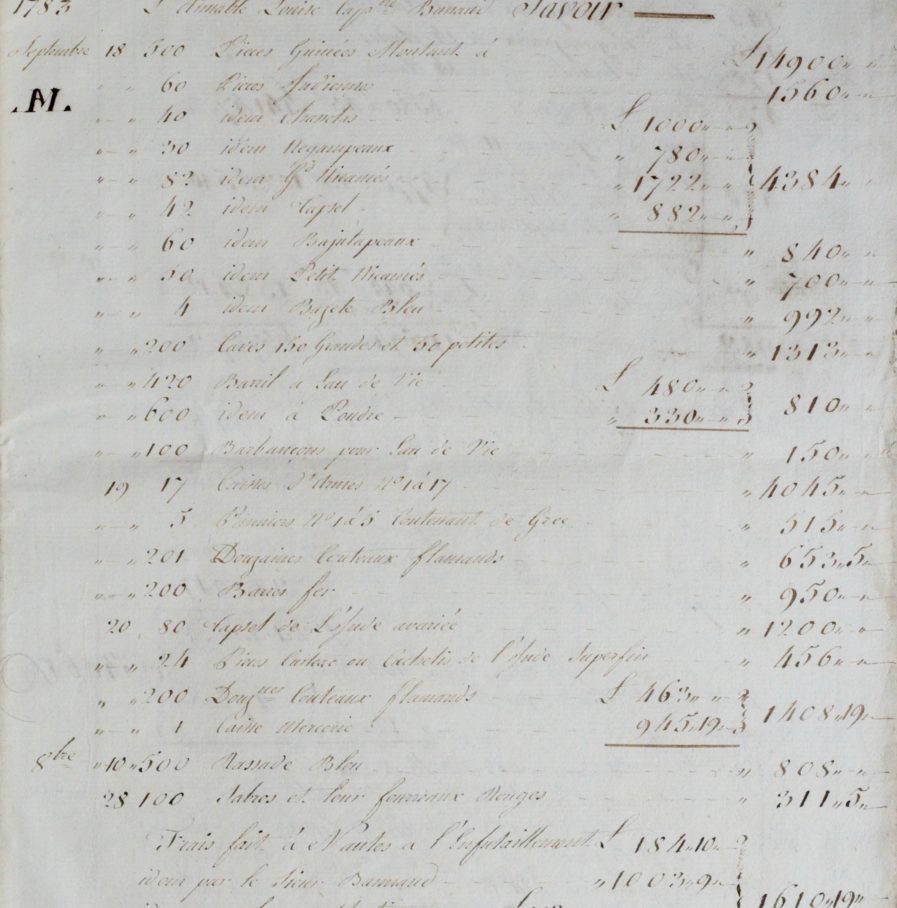 1783 L'Aimable Louise Cap.ne Savoir
Septembre 18 500 Pieces Guinées Montant à £ 14900 " "
.M. " " 60 Pieces Indienne 1560 " "
" " 40 idem Chaselas £ 1000 " "
" " 30 idem Negampeaux " 780 " "
" " 82 idem Gd Nicanés " 1722 " " 4384 " "
" " 42 idem Capsel " 882 " "
" " 60 idem Bajutapeaux " 840 " "
" " 50 idem Petit Nicanés " 700 " "
" " 4 idem Bleu " 992 " "
" " 200 Caves 150 Grandes et 50 petites " 1313 " "
" " 420 Baril à Eau de Vie £ 480 " "
" " 600 idem à Poudre " 330 " " 810 " "
" " 100 pour Eau de Vie " 150 " "
19 17 Caisses d'Armes No 1 à 17 " 4045 " "
" " 5 No 1 à 5 Contenant de Gree " 515 " "
" " 201 Douzaines Couteaux flamands " 653 " 5 "
" " 200 Barres fer " 950 " "
20 80 Capsel de L'Inde avariée " 1200 " "
" " 24 Pieces ou de l'Inde Superfin " 456 " "
" " 200 Douz.nes Couteaux flamands £ 463 " "
" " 1 Caisse Mercerie 945 " 19 " 1408 " 19 "
8bre " 10 " 500 Rassade Bleu " 808 " "
28 100 Sabres et Leur foureaux Rouges " 311 " 5 "
Frais fait à Nantes à l' £ 184 " 10 "
idem par le Sieur " 1003 " 9 "
1610 " 19 "